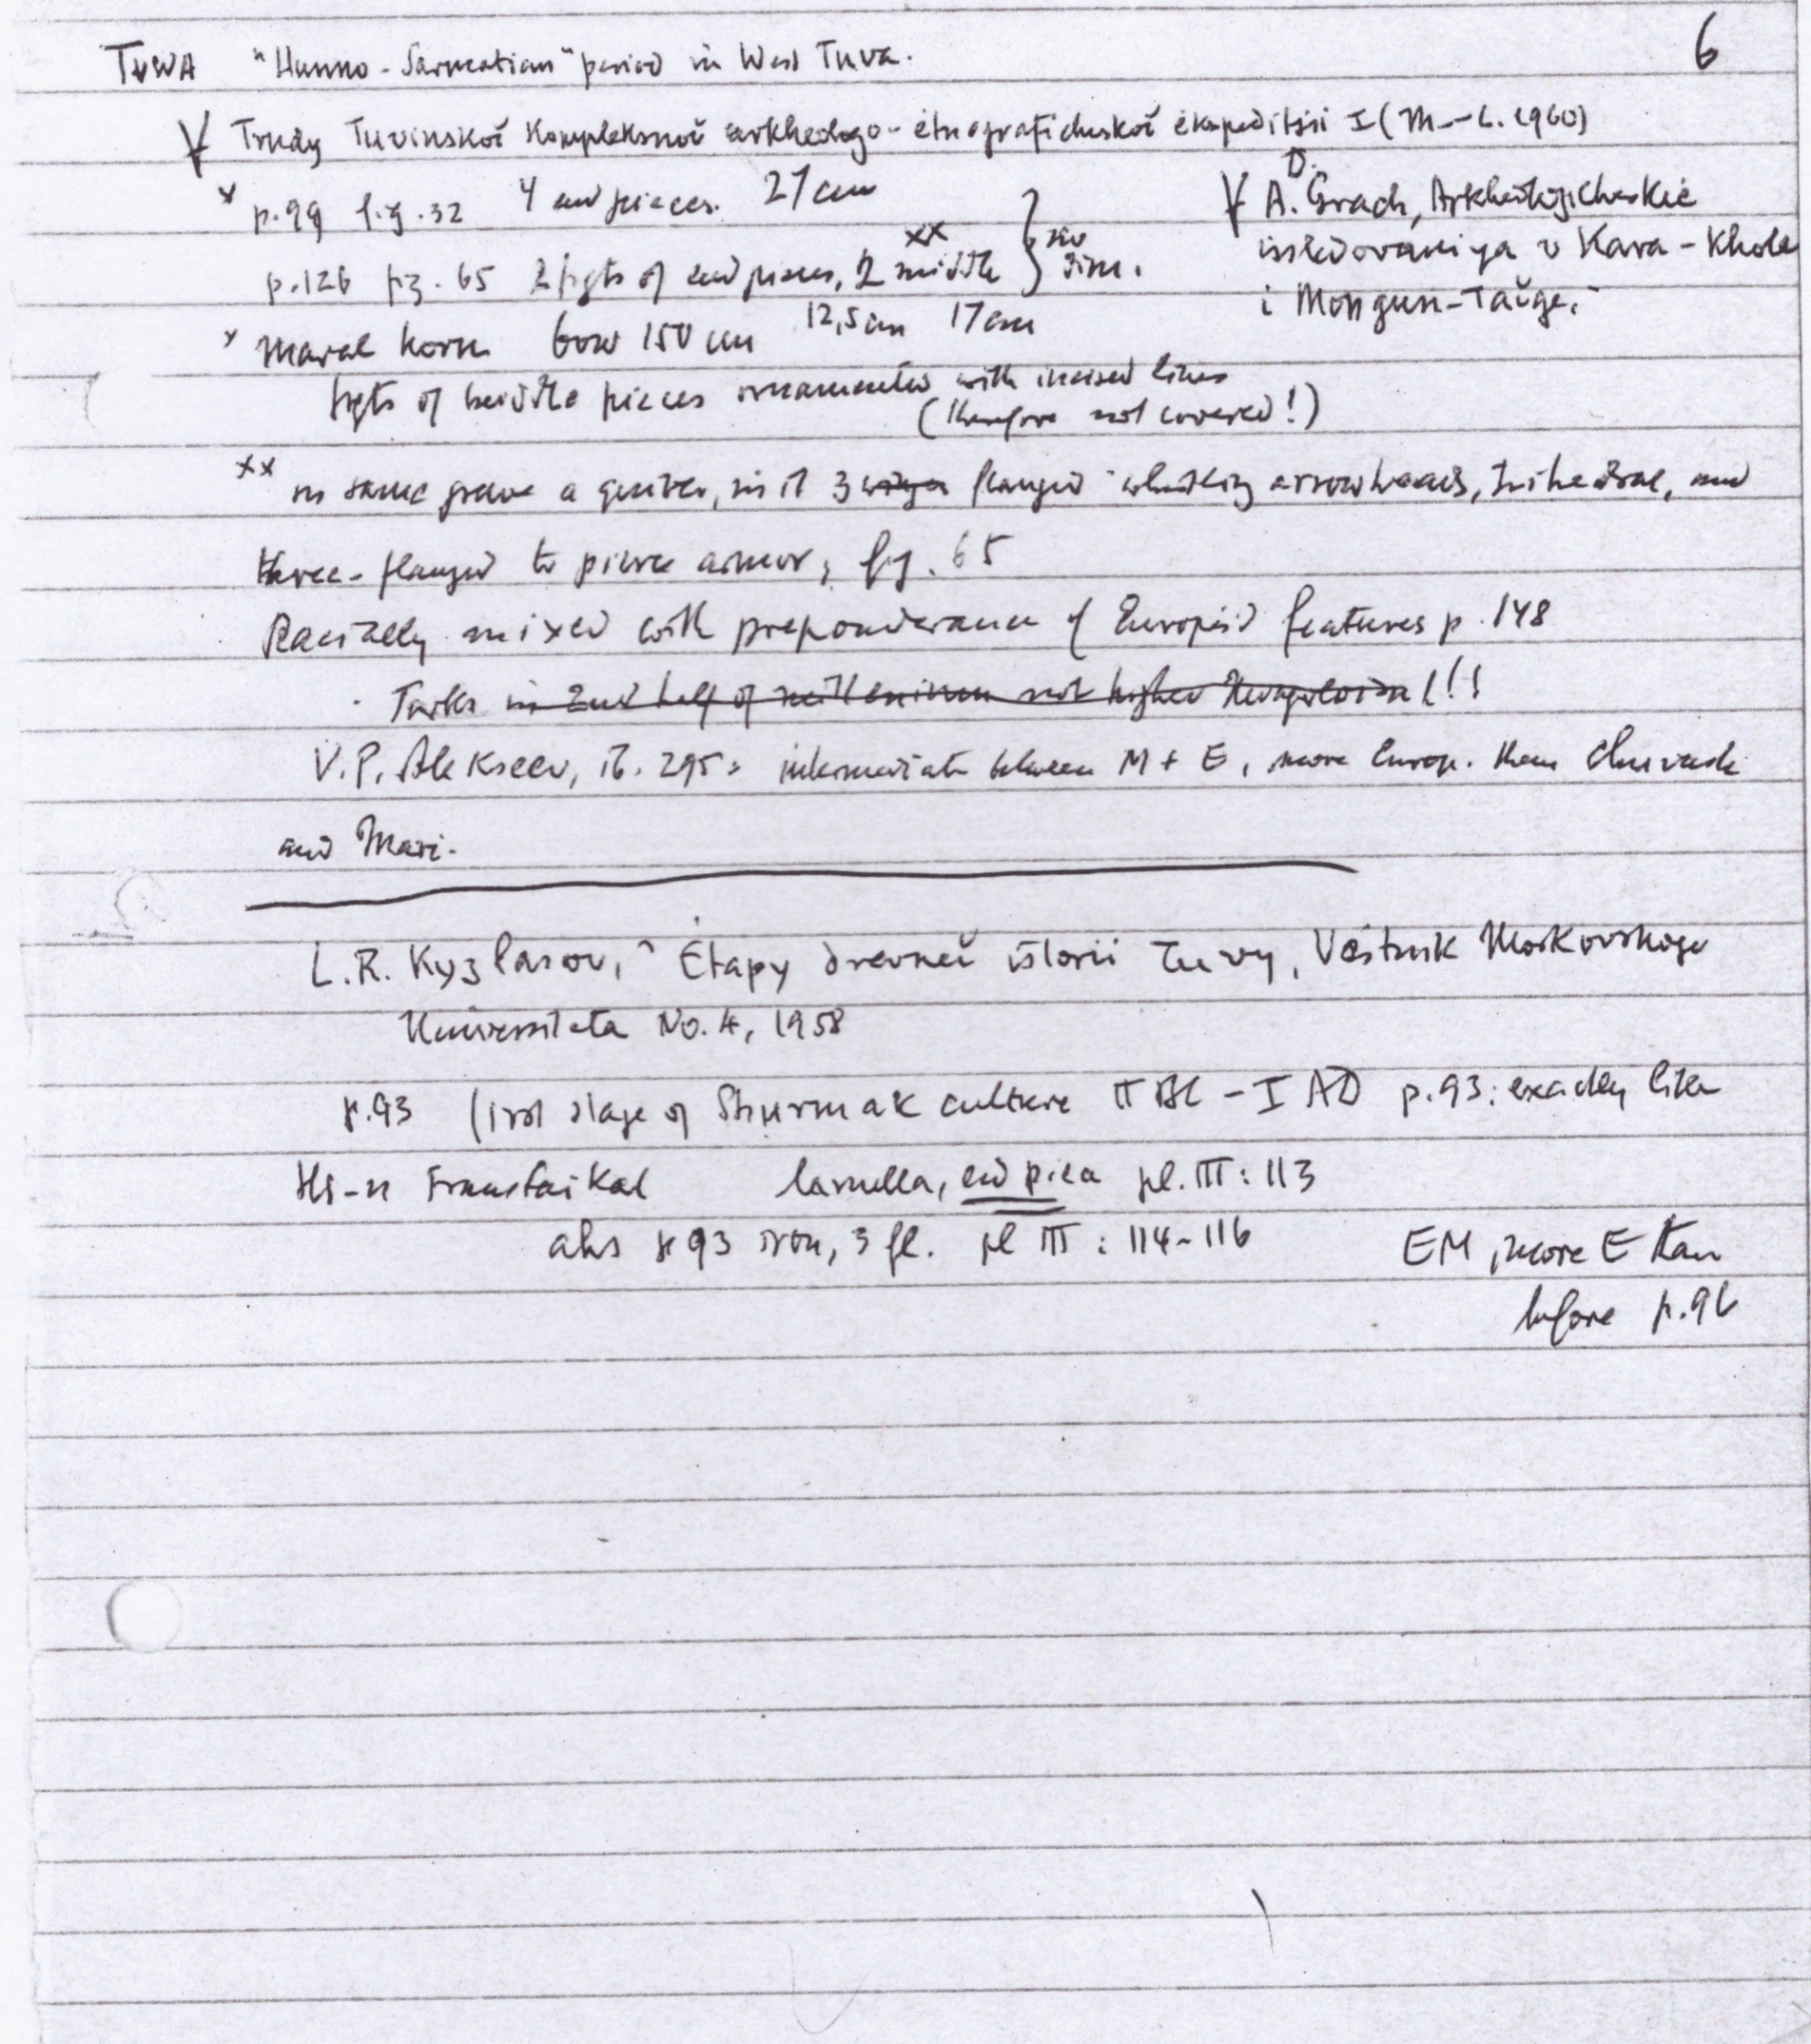 6
TUWA "Hunno-Sarmatian" period in West Tuva.
Trudy Tuvinskoĭ Kompleksnoĭ arkheologo-ètnograficheskoĭ èkspeditsii I (M.-L. 1960)
x p.99 fig.32 4 end pieces. 27 cm
p.126 fig. 65 2 fgts of end pieces, 2 middle xx } no dim.
A.D. Grach, Arkheologicheskie
issledovaniya v Kara-Khole
i Mongun-Taĭge.
x maral horn bow 150 cm 12,5 cm 17 cm
fgts of middle pieces ornamented with incised lines
(therefore not covered!)
xx in same grave a quiver, in it 3 flanged whistling arrowheads, trihedral, and
three-flanged to pierce armor, fig. 65
Racially mixed with preponderance of Europoid features p. 148
Turks in 2nd half of millennium not higher Mongoloid!!!
V.P. Alekseev, ib. 295: intermediate between M + E, more Europ. than Chuvash
and Mari.
L.R. Kyzlasov, Ètapy drevneĭ istorii Tuvy, Vestnik Moskovskogo
Universiteta No. 4, 1958
p.93 (1rst stage of Shurmak culture II BC - I AD p.93: exactly like
Hs-n Transbaikal lamella, end piece pl. III: 113
also p 93 iron, 3 fl. pl III: 114-116
EM, more E than
before p.96